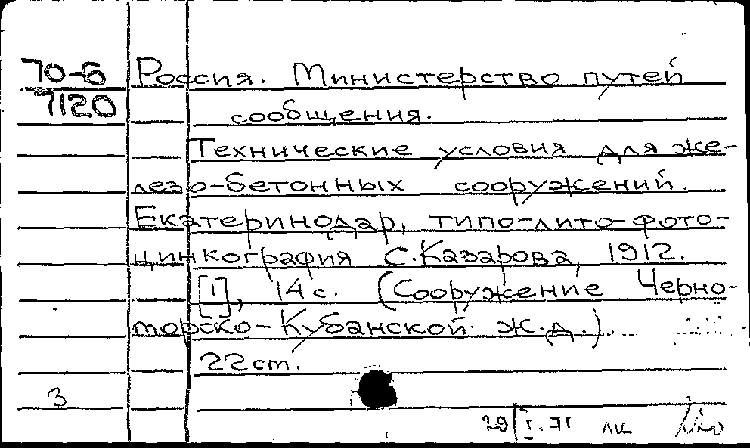 70-5 Россия. Министерство путей
7120 сообщения.
Технические условия для же-
лезо-бетонных сооружений.
Екатеринодар, типо-лито-фото-
цинкография С.Казарова, 1912.
[1], 14 с. (Сооружение Черно-
морско-Кубанской ж.д.)
22 cm.
3
29/I.71